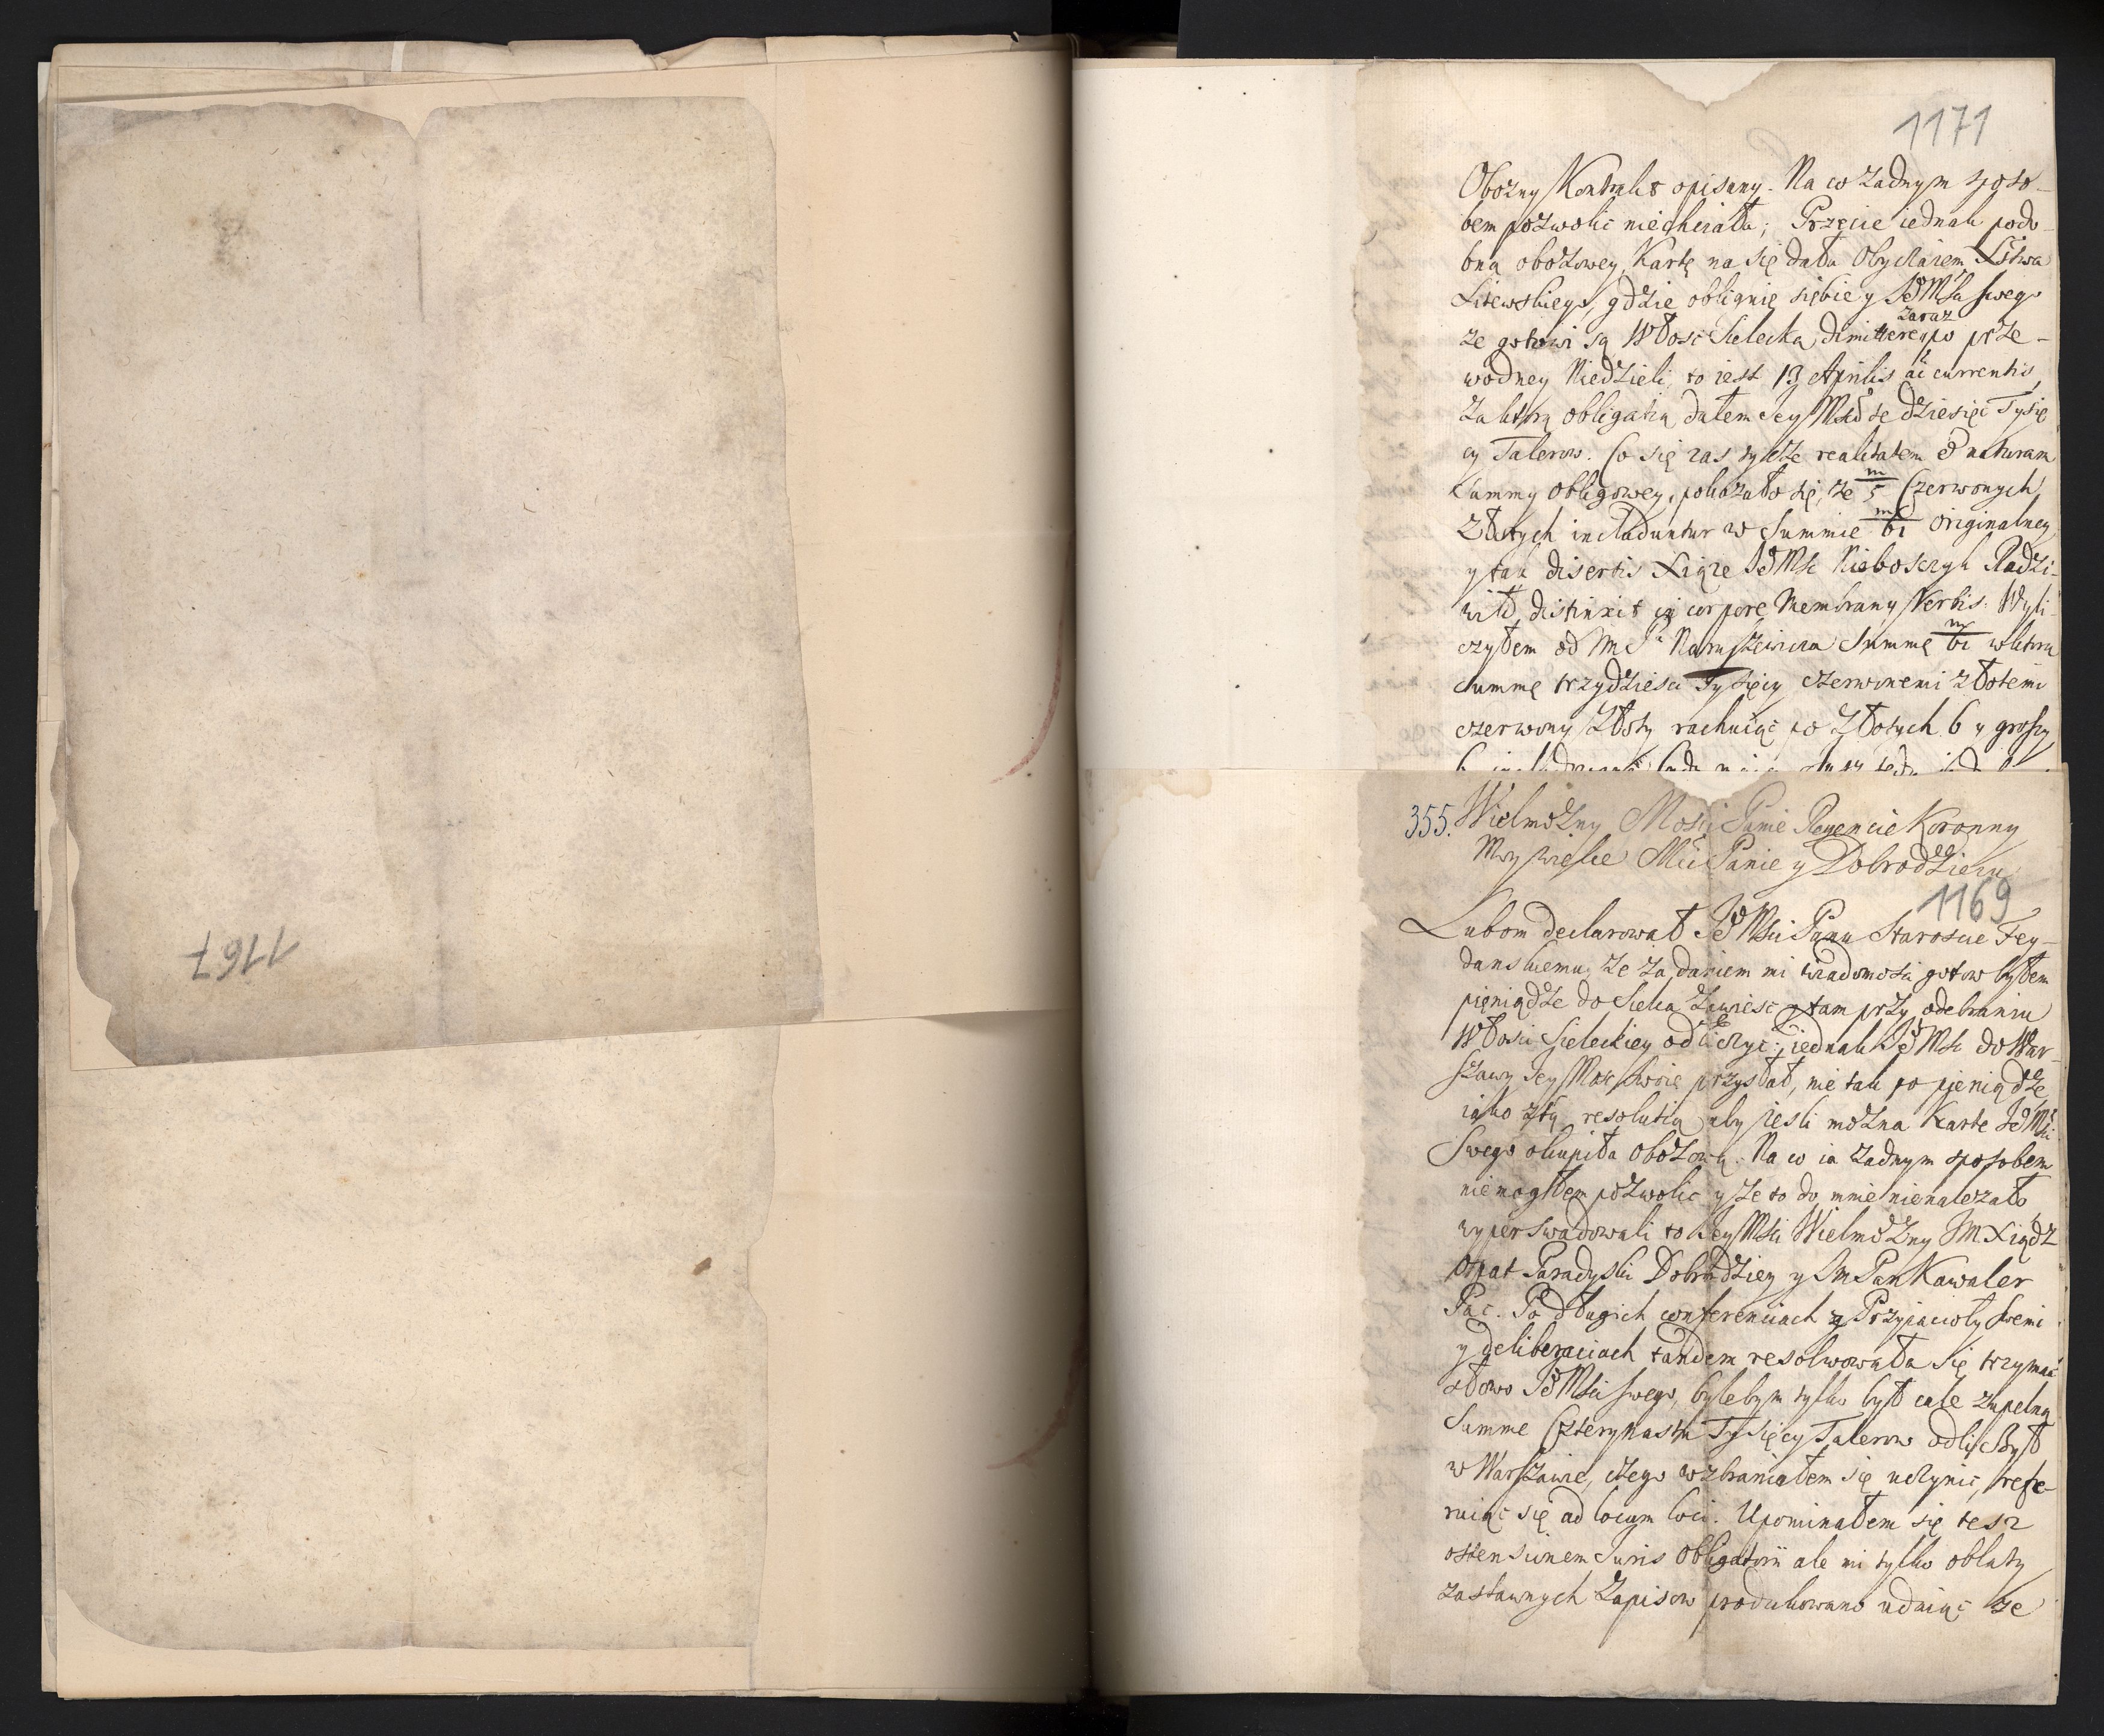 1167
1171
Obozny Kontrakt opisany. Na co żadnym sposo-
bem pozwolić niechciała; Przecie iednak podo-
bną obozowey Kartę na się dała Obyczaiem Xstwa
Litewskiego, gdzie obliguię siębie y JeoMśa swego
zaraz
że gotowi są Włość Sielecką dimittere po prze-
wodney Niedzieli, to iest 13 Aprilis ai currentis,
za którą obligatią dałem Jey Mści te dziesięć Tysię
cy Talerow. Co się zas tycze realitatem et naturam
Summy Obligowey, pokazało się, że 5 m Czerwonych
Złotych includuntur w Summie 61 m originalney
y tak disertis Xiąże JeoMść Nieboszczyk Radzi-
wiłł distinxit in corpore Membrany Verbis: Wyli-
czyłem od Im Pa Naruszewicza Summę 61 m w którą
Summę trzydziesci Tysięcy czerwonemi złotemi
czerwony Złoty rachuiąc po Złotych 6 y groszy
355. Wielmożny Mości Panie Regencie Koronny
Moy wielce Mći Panie y Dobrodzieiu
1169
Lubom declarował JeoMści Panu Staroscie Fey-
danskiemu, że za daniem mi wiadomości gotow byłem
pieniądze do Sielca zawiesc y tam przy odebraniu
Włosci Sieleckiey odliczyć; iednak JeoMść do War-
szawy Jey Mość swoię przysłał, nie tak po pieniądze
iako z tą resolutią aby jesli można Karte JeoMści
Swego okupiła Obozową. Na co ia żadnym sposobem
niemogłem pozwolić y że to do mnie nienależało
wyperswadowali to Jey Mści Wielmożny JM Xiądz
Opat Paradyski Dobrodziey y Im Pan Kawaler
Pac. Po długich conferenciach z Przyiacioły swemi
y deliberaciach tandem resolwowała się trzymać
słowo JeoMści swego, bylebym tylko był cale zupełną
Summe Czternastu Tysięcy Talerow odliczył
w Warszawie, czego wzbraniałem się uczynić, refe-
ruiąc się ad locum loci. Upominałem się tesz
ostensionem Juris Obligatorii ale mi tylko oblaty
zastawnych Zapisow produkowano udaiąc że